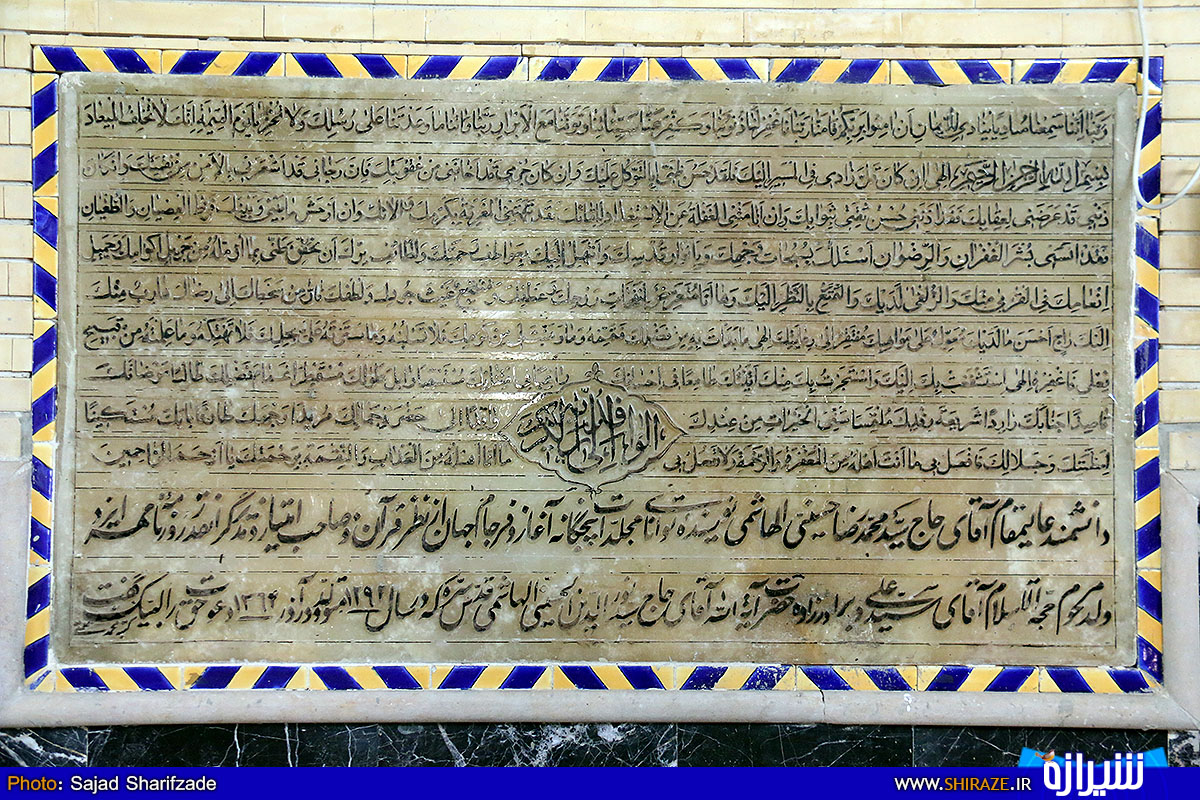 ربنا اننا سمعنا منادیا ینادی للایمان ان امنوا بربکم فامنا ربنا فاغفر لنا ذنوبنا و کفر عنا سیئاتنا و توفنا مع الابرار ربنا و اتنا ما وعدتنا علی رسلک و لا تخزنا یوم القیمة انک لا تخلف المیعاد
بسم الله الرحمن الرحیم الهی ان کان قل زادی فی المسیر الیک فلقد حسن ظنی بالتوکل علیک و ان کان جرمی قد اخافنی من عقوبتک فان رجائی قد اشعرنی بالامن من نقمتک و ان کان
ذنبی قد عرضنی لعقابک فقد اذننی حسن ثقتی بثوابک و ان انامتنی الغفلة عن الاستعداد للقائک فقد نبهتنی المعرفة بکرمک و الائک و ان اوحش ما بینی و بینک فرط العصیان و الطغیان
فقد انسنی بشری الغفران والرضوان اسئلک بسبحات وجهک و بانوار قدسک و ابتهل الیک بعواطف رحمتک و لطائف برک ان تحقق ظنی بما اؤمله من جزیل اکرامک و جمیل
انعامک فی القربی منک والزلفی لدیک والتمتع بالنظر الیک و ها انا متعرض لنفحات روحک و عطفک و منتجع غیث جودک و لطفک فار من سخطک الی رضاک هارب منک
الیک راج احسن ما لدیک معول علی مواهبک مفتقر الی رعایتک الهی ما بدات به من فضلک فتممه و ما وهبت لی من کرمک فلا تسلبه و ما سترته علی بحلمک فلا تهتکه و ما علمته من قبیح
فعلی فاغفره الهی استشفعت بک الیک و استجرت بک منک اتیتک طامعا فی احسانک راغبا فی امتنانک مستسقیا وابل طولک مستمطرا غمام فضلک طالبا مرضاتک
قاصدا جنابک واردا شریعة رفدک ملتمسا سنی الخیرات من عندک وافدا الی حضرة جمالک مریدا وجهک طارقا بابک مستکینا
لعظمتک و جلالک فافعل بی ما انت اهله من المغفرة والرحمة و لا تفعل بی ما انا اهله من العذاب والنقمة برحمتک یا ارحم الراحمین
دانشمند عالیمقام آقای حاج سید محمدرضا حسینی الهاشمی نویسنده توانای مجلدات پنجگانه آغاز و فرجام جهان از نظر قرآن و صاحب امتیاز روزنامه مهر ایزد
ولد مرحوم حجة الاسلام آقای سید علی و برادرزاده حضرت آیة الله آقای حاج سید نورالدین الحسینی الهاشمی قدس سره که در سال ۱۲۹۲ متولد و در آذر ۱۳۶۴ دعوت حق را لبیک گفت
Photo: Sajad Sharifzade
WWW.SHIRAZE.IR
شیرازه